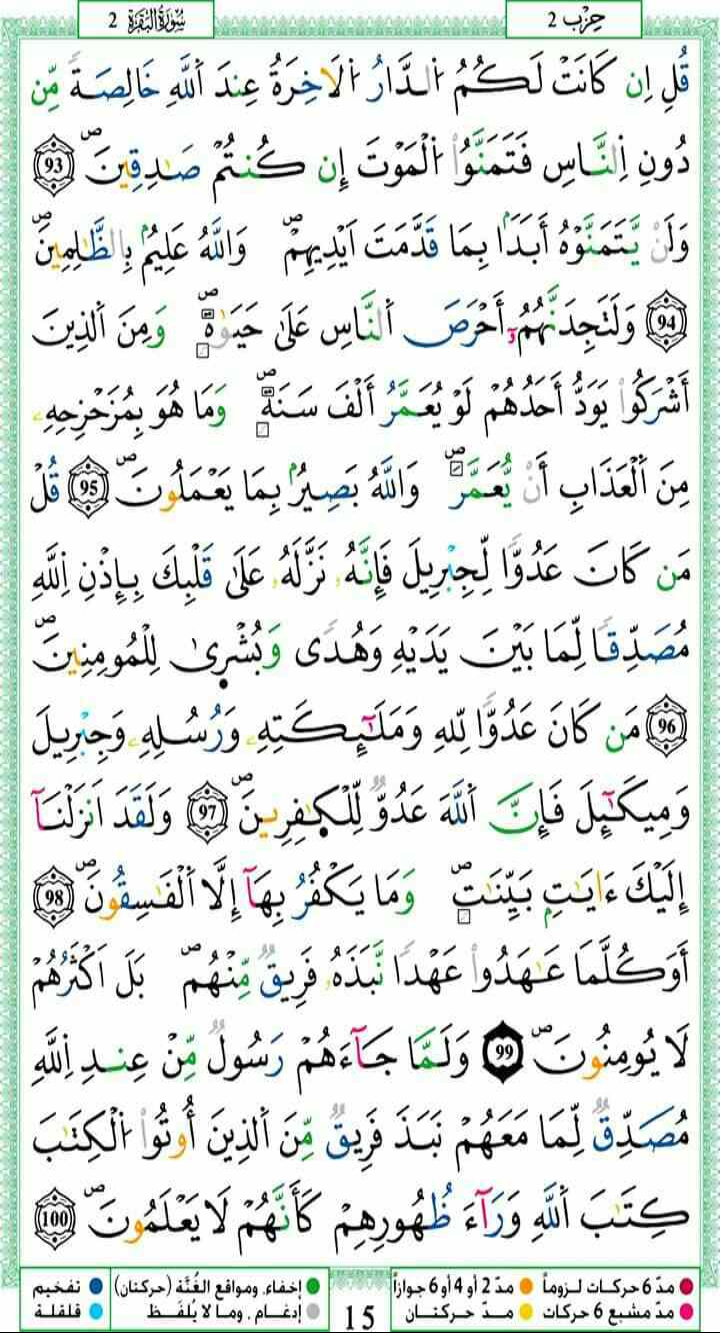 سُورَةُ البَقَرَة 2
حِزْب 2
قُلِ اِن كَانَتْ لَكُمُ اُ۬لدَّارُ اُ۬لَاخِرَةُ عِندَ اَ۬للَّهِ خَالِصَةٗ مِّن
دُونِ اِ۬لنَّاسِ فَتَمَنَّوُاْ اُ۬لْمَوْتَ إِن كُنتُمْ صَٰدِقِينَۖ 93
وَلَنْ يَّتَمَنَّوْهُ أَبَدَاۢ بِمَا قَدَّمَتَ اَيْدِيهِمْۖ وَاللَّهُ عَلِيمُۢ بِالظَّٰلِمِينَۖ
94 وَلَتَجِدَنَّهُمُۥٓ أَحْرَصَ اَ۬لنَّاسِ عَلَىٰ حَيَوٰةٖۖ وَمِنَ اَ۬لذِينَ
أَشْرَكُواْ يَوَدُّ أَحَدُهُمْ لَوْ يُعَمَّرُ أَلْفَ سَنَةٖۖ وَمَا هُوَ بِمُزَحْزِحِهِۦ
مِنَ اَ۬لْعَذَابِ أَنْ يُّعَمَّرَۖ وَاللَّهُ بَصِيرُۢ بِمَا يَعْمَلُونَۖ 95 قُلْ
مَن كَانَ عَدُوّاٗ لِّجِبْرِيلَ فَإِنَّهُۥ نَزَّلَهُۥ عَلَىٰ قَلْبِكَ بِإِذْنِ اِ۬للَّهِ
مُصَدِّقاٗ لِّمَا بَيْنَ يَدَيْهِ وَهُدىٗ وَبُشْرۭىٰ لِلْمُومِنِينَۖ
96 مَن كَانَ عَدُوّاٗ لِّلهِ وَمَلَٰٓئِكَتِهِۦ وَرُسُلِهِۦ وَجِبْرِيلَ
وَمِيكَٰٓئِلَ فَإِنَّ اَ۬للَّهَ عَدُوّٞ لِّلْكٰ۪فِرِينَۖ 97 وَلَقَدَ اَنزَلْنَآ
إِلَيْكَ ءَايَٰتِۢ بَيِّنَٰتٖۖ وَمَا يَكْفُرُ بِهَآ إِلَّا اَ۬لْفَٰسِقُونَۖ 98
أَوَكُلَّمَا عَٰهَدُواْ عَهْداٗ نَّبَذَهُۥ فَرِيقٞ مِّنْهُمۖ بَلَ اَكْثَرُهُمْ
لَا يُومِنُونَۖ 99 وَلَمَّا جَآءَهُمْ رَسُولٞ مِّنْ عِندِ اِ۬للَّهِ
مُصَدِّقٞ لِّمَا مَعَهُمْ نَبَذَ فَرِيقٞ مِّنَ اَ۬لذِينَ أُوتُواْ اُ۬لْكِتَٰبَ
كِتَٰبَ اَ۬للَّهِ وَرَآءَ ظُهُورِهِمْ كَأَنَّهُمْ لَا يَعْلَمُونَۖ 100
مدّ 6 حركات لـزومـاً مدّ 2 أو 4 أو 6 جوازاً إخفاء، ومواقع الغُنَّة (حركتان) تفخيم
مدّ مشبع 6 حركات مـدّ حركتـان إدغام، ومـا لا يُلفَـظ قلقلة
15